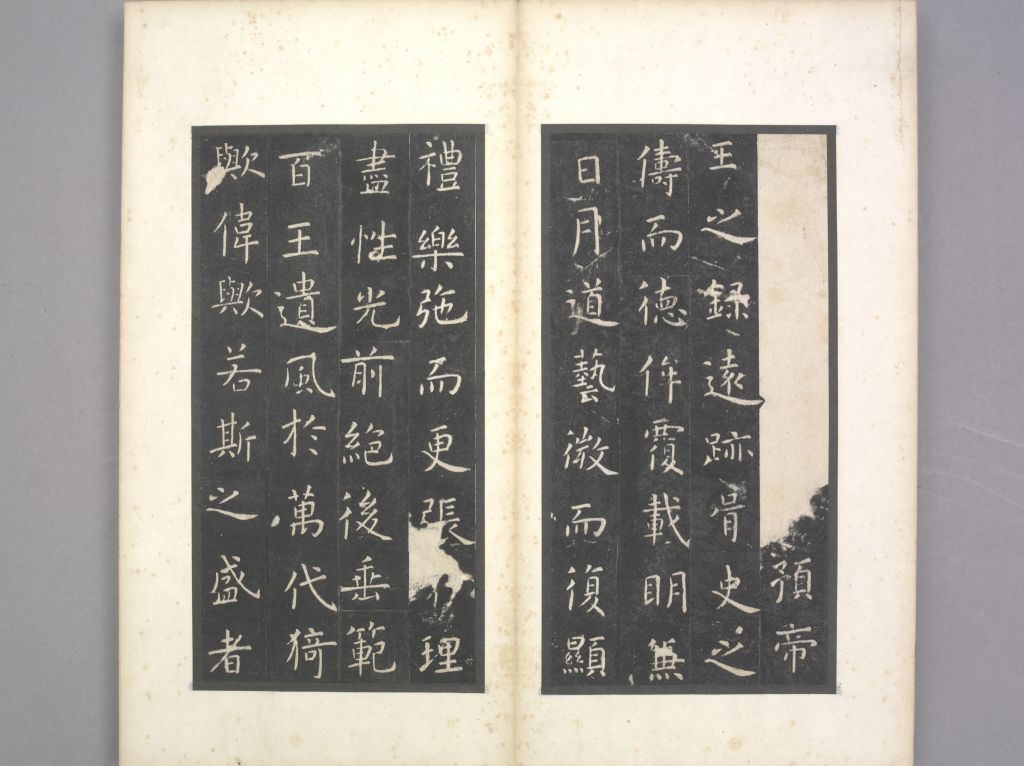 預帝
王之錄遠跡胥史之
儔而德侔覆載明兼
日月道藝微而復顯
禮樂弛而更張理
盡性光前絕後垂範
百王遺風於萬代猗
歟偉歟若斯之盛者